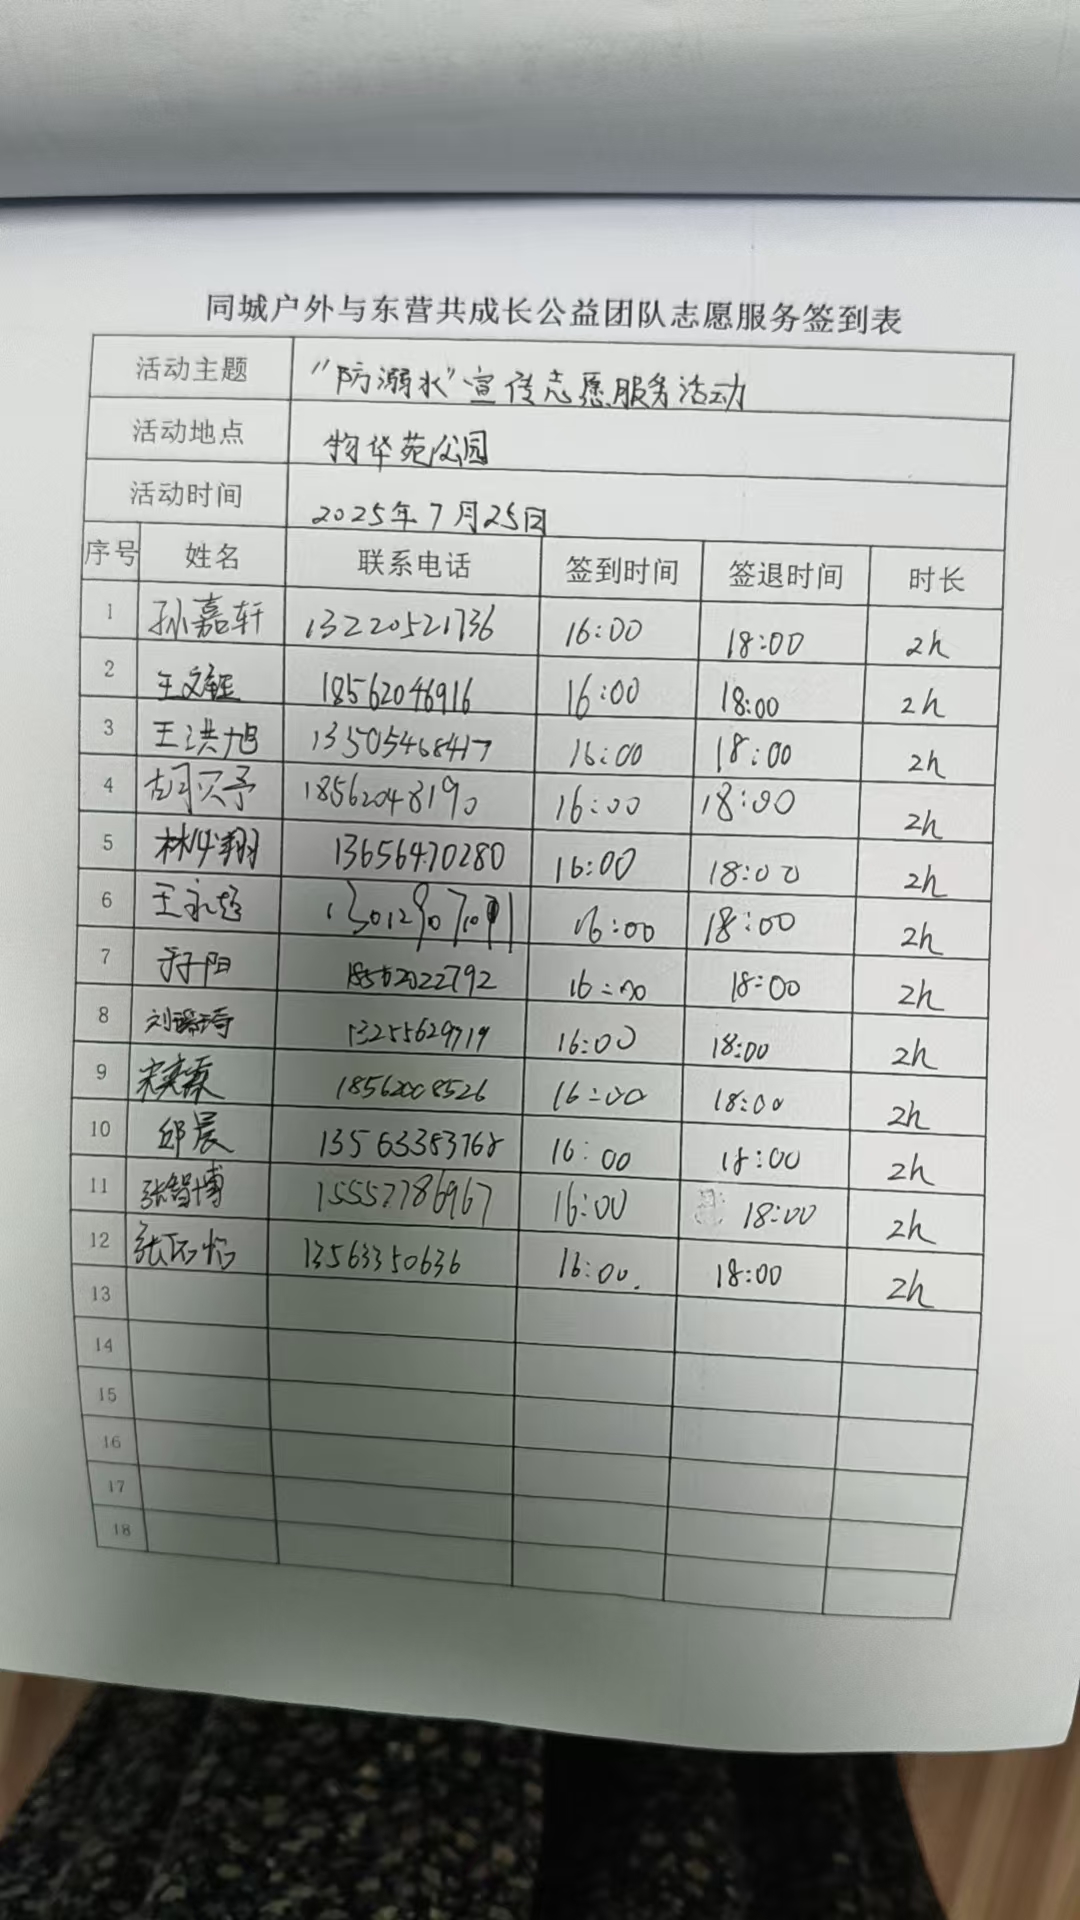 同城户外与东营共成长公益团队志愿服务签到表
活动主题 “防溺水”宣传志愿服务活动
活动地点 物华苑公园
活动时间 2025年7月25日
序号 姓名 联系电话 签到时间 签退时间 时长
1 孙嘉轩 13220521736 16:00 18:00 2h
2 王文钰 18562046916 16:00 18:00 2h
3 王洪旭 13505468417 16:00 18:00 2h
4 18562048190 16:00 18:00 2h
5 13656470280 16:00 18:00 2h
6 王永超 16:00 18:00 2h
7 于子阳 18562022792 16:00 18:00 2h
8 13255629719 16:00 18:00 2h
9 18562008526 16:00 18:00 2h
10 邱晨 13563383768 16:00 18:00 2h
11 张智博 15557786967 16:00 18:00 2h
12 13563350636 16:00. 18:00 2h
13
14
15
16
17
18